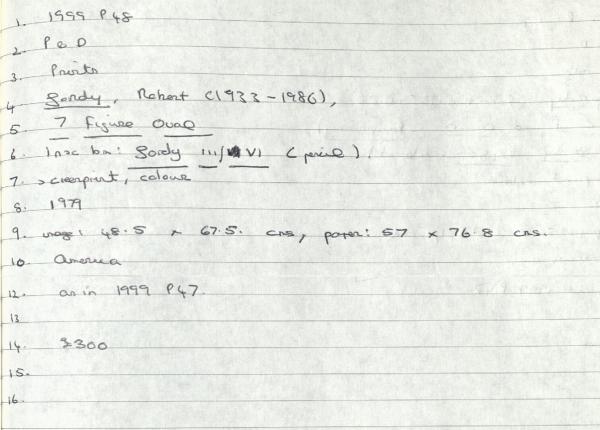 1. 1999 P48
2. P & D
3. Prints
4 Gordy, Robert (1933-1986),
5 7 Figure Oval
6. Insc bm: Gordy III/VI (pencil).
7. screenprint, colour
8. 1979
9. image: 48.5 x 67.5. cms, paper: 57 x 76.8 cms.
10. America
12. as in 1999 P47.
13
14. $300
15.
16.